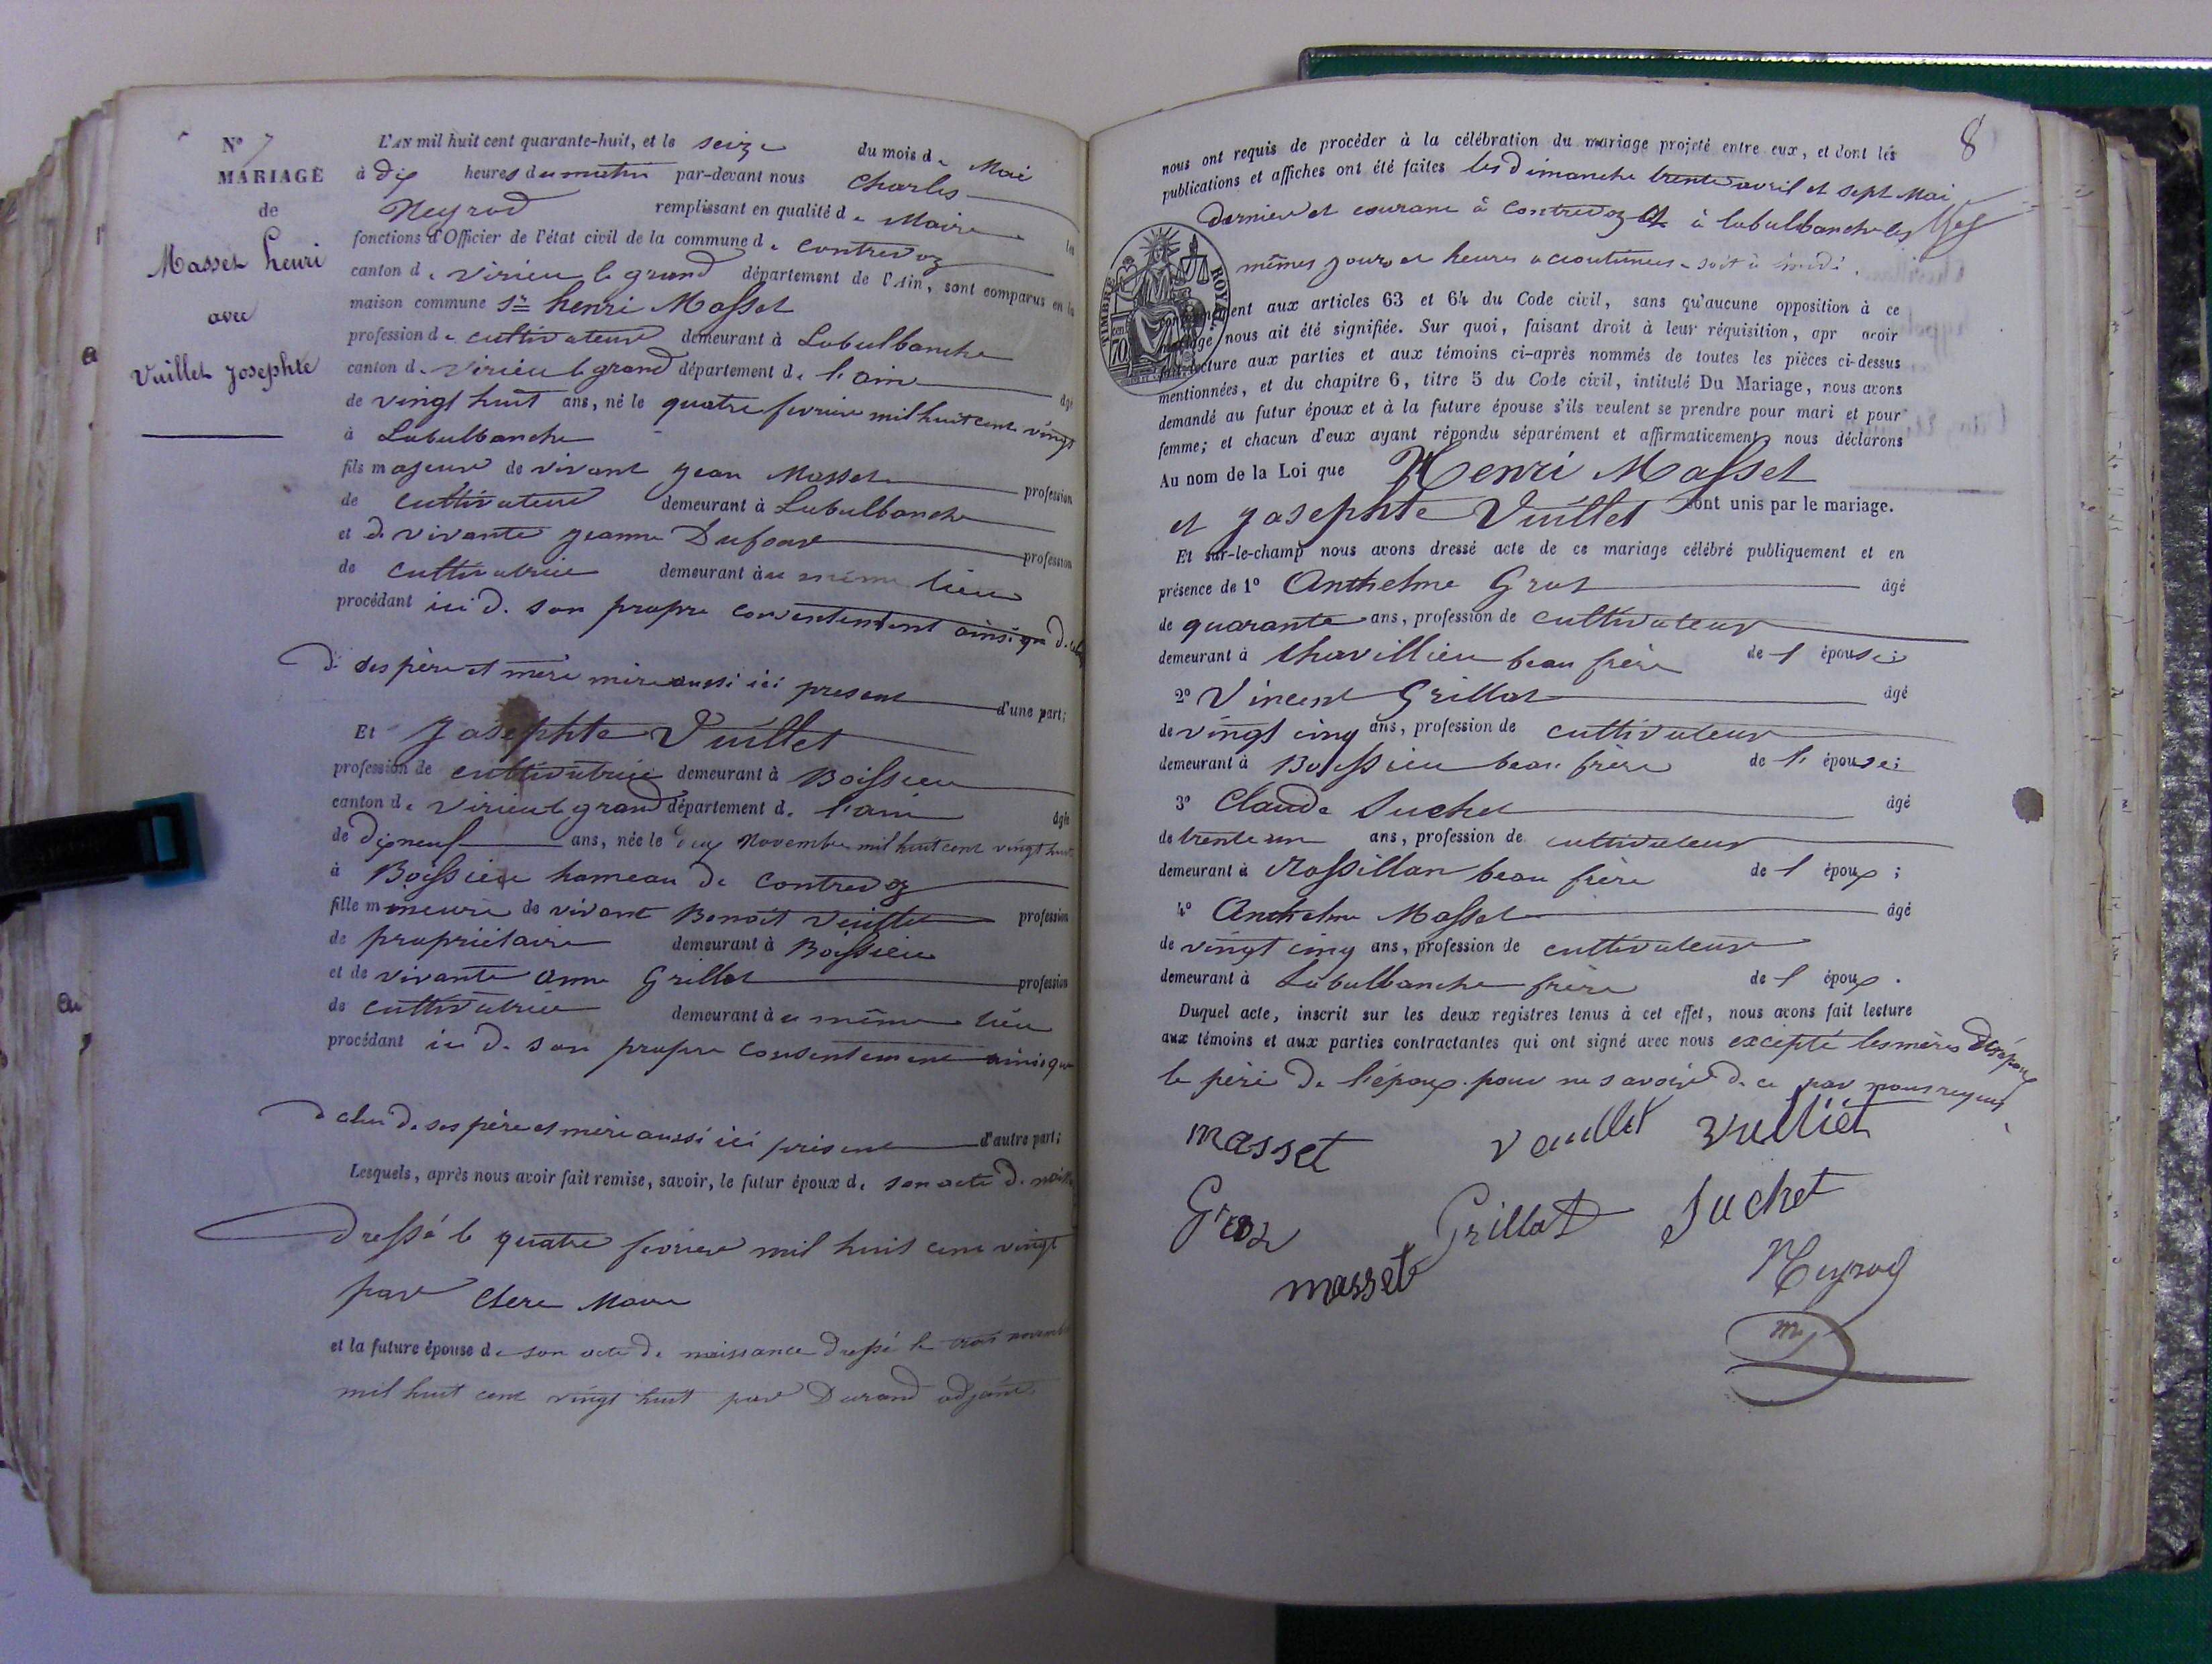 N° 7
MARIAGE
de
Masset henri
avec
Vuillet Josephte
L'AN mil huit cent quarante-huit, et le seize du mois de Mai
à dix heures du matin par-devant nous Charles
Neyrod remplissant en qualité de Maire les
fonctions d'Officier de l'état civil de la commune de Contrevoz
canton de Virieu le grand département de l'Ain, sont comparus en la
maison commune Sr henri Masset
profession de cultivateur demeurant à Labulbanche
canton de Virieu le grand département de l'ain âgé
de vingt huit ans, né le quatre fevrier mil huit cent vingt
à Labulbanche
fils majeur de vivant Jean Masset profession
de cultivateur demeurant à Labulbanche
et de vivante Jeanne Dufour profession
de cultivatrice demeurant au même lieu
procédant ici de son propre consentement ainsi que de celui
de ses père et mère mère aussi ici présent d'une part;
Et Josephte Vuillet
profession de cultivatrice demeurant à Boissieu
canton de Virieu le grand département de l'ain âgée
de dix neuf ans, née le deux Novembre mil huit cent vingt huit
à Boissieu hameau de Contrevoz
fille mineure de vivant Benoit Vuillet profession
de propriétaire demeurant à Boissieu
et de vivante Anne Grillot profession
de cultivatrice demeurant au même lieu
procédant ici de son propre consentement ainsi que
de celui de ses père et mère aussi ici présent d'autre part;
Lesquels, après nous avoir fait remise, savoir, le futur époux de son acte de
Dressé le quatre fevrier mil huit cent vingt
par Maire
et la future épouse de son acte de naissance dressé le trois novembre
mil huit cent vingt huit par Durand adjoint
8
nous ont requis de procéder à la célébration du mariage projeté entre eux, et dont les
publications et affiches ont été faites les dimanche trente avril et sept Mai
dernier et courant à Contrevoz et à Labulbanche les
mêmes jours et heures accoutumées soit à midi.
TIMBRE ROYAL
70
conformément aux articles 63 et 64 du Code civil, sans qu'aucune opposition à ce
mariage nous ait été signifiée. Sur quoi, faisant droit à leur réquisition, apr avoir
fait lecture aux parties et aux témoins ci-après nommés de toutes les pièces ci-dessus
mentionnées, et du chapitre 6, titre 5 du Code civil, intitulé Du Mariage, nous avons
demandé au futur époux et à la future épouse s'ils veulent se prendre pour mari et pour
femme; et chacun d'eux ayant répondu séparément et affirmativement, nous déclarons
Au nom de la Loi que Henri Masset
et Josephte Vuillet sont unis par le mariage.
Et sur-le-champ nous avons dressé acte de ce mariage célébré publiquement et en
présence de 1° Anthelme Gros âgé
de quarante ans, profession de cultivateur
demeurant à Chavillieu beau frère de l'épouse;
2° Vincent Grillot âgé
de vingt cinq ans, profession de cultivateur
demeurant à Boissieu beau frère de l'épouse;
3° Claude Suchet âgé
de trente un ans, profession de cultivateur
demeurant à Rossillon beau frère de l'époux;
4° Anthelme Masset âgé
de vingt cinq ans, profession de cultivateur
demeurant à Labulbanche frère de l'époux.
Duquel acte, inscrit sur les deux registres tenus à cet effet, nous avons fait lecture
aux témoins et aux parties contractantes qui ont signé avec nous excepté les mères des époux
le père de l'époux pour ne savoir de ce par nous requis
masset vuillet vuilliet
Gros Grillot Suchet
masset Neyrod
m